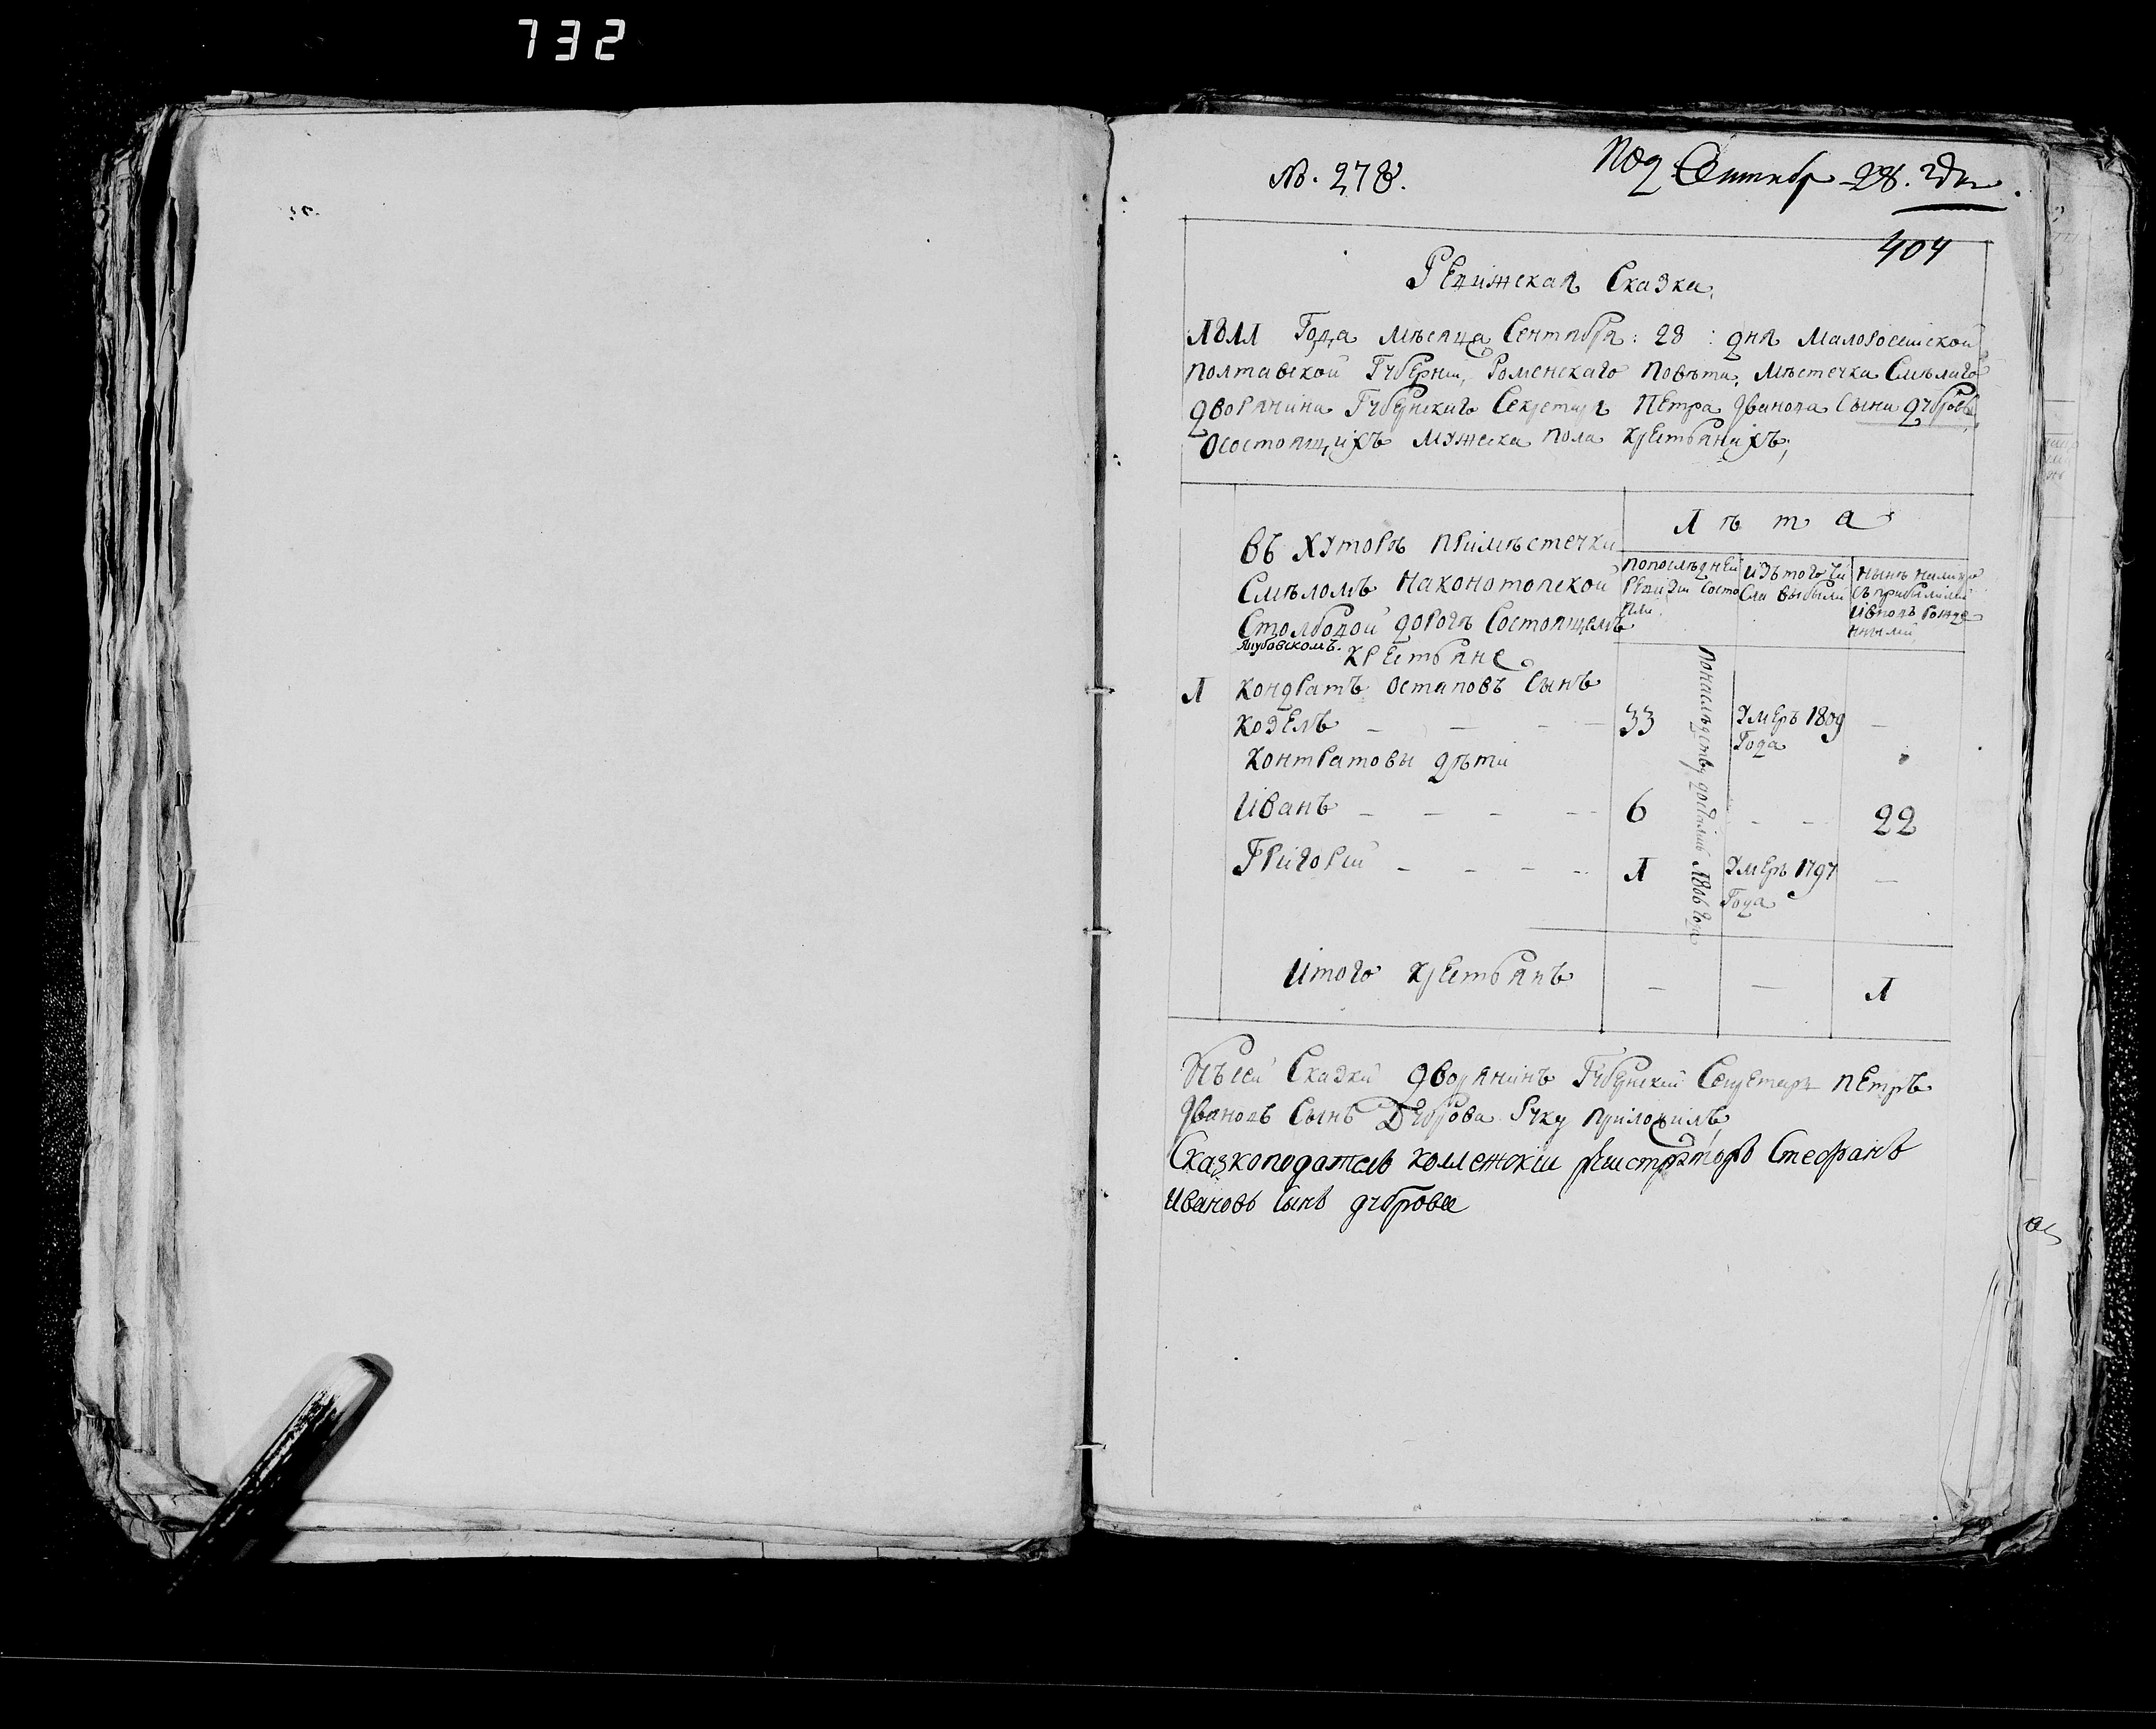 732
№. 278.
Под Сентябр 28. дня
404
Ревижская Сказка,
1811 Года мѣсяца Сентября: 28 : дня Малоросийской
полтавской Губернии, Роменскаго повѣта, Мѣстечка Смѣлаго
дворянина Губернскаго Секретаря Петра Иванова Сына дубров
осостоящихъ мужеска пола крестьянахъ;
Лѣта
Въ Хуторѣ примѣстечки
Смѣломъ наконотопской
Столбовой дорогѣ Состоящемъ
крестьяне
попослѣдней
ревизии состо
яли
изъ того чи
сла выбыли
нынѣ налицо
съ прибылими
ивновь рожде
нными
1 кондратъ остаповъ сынъ
козелъ — — — 33 умеръ 1809 —
Года
контратовы дѣти
Иванъ — — — — 6 — — 22
Григорий — — — — 1 умеръ 1797 —
Года
понаслѣдству досталис 1806 года
Итого крестьянъ — — 1
Ксъсей Сказки дворянинъ Губернский Секретарь петръ
Ивановъ Сынъ Дуброва руку приложилъ
Сказкоподатель коллежский регистраторъ Стефанъ
Ивановъ сынъ дуброва